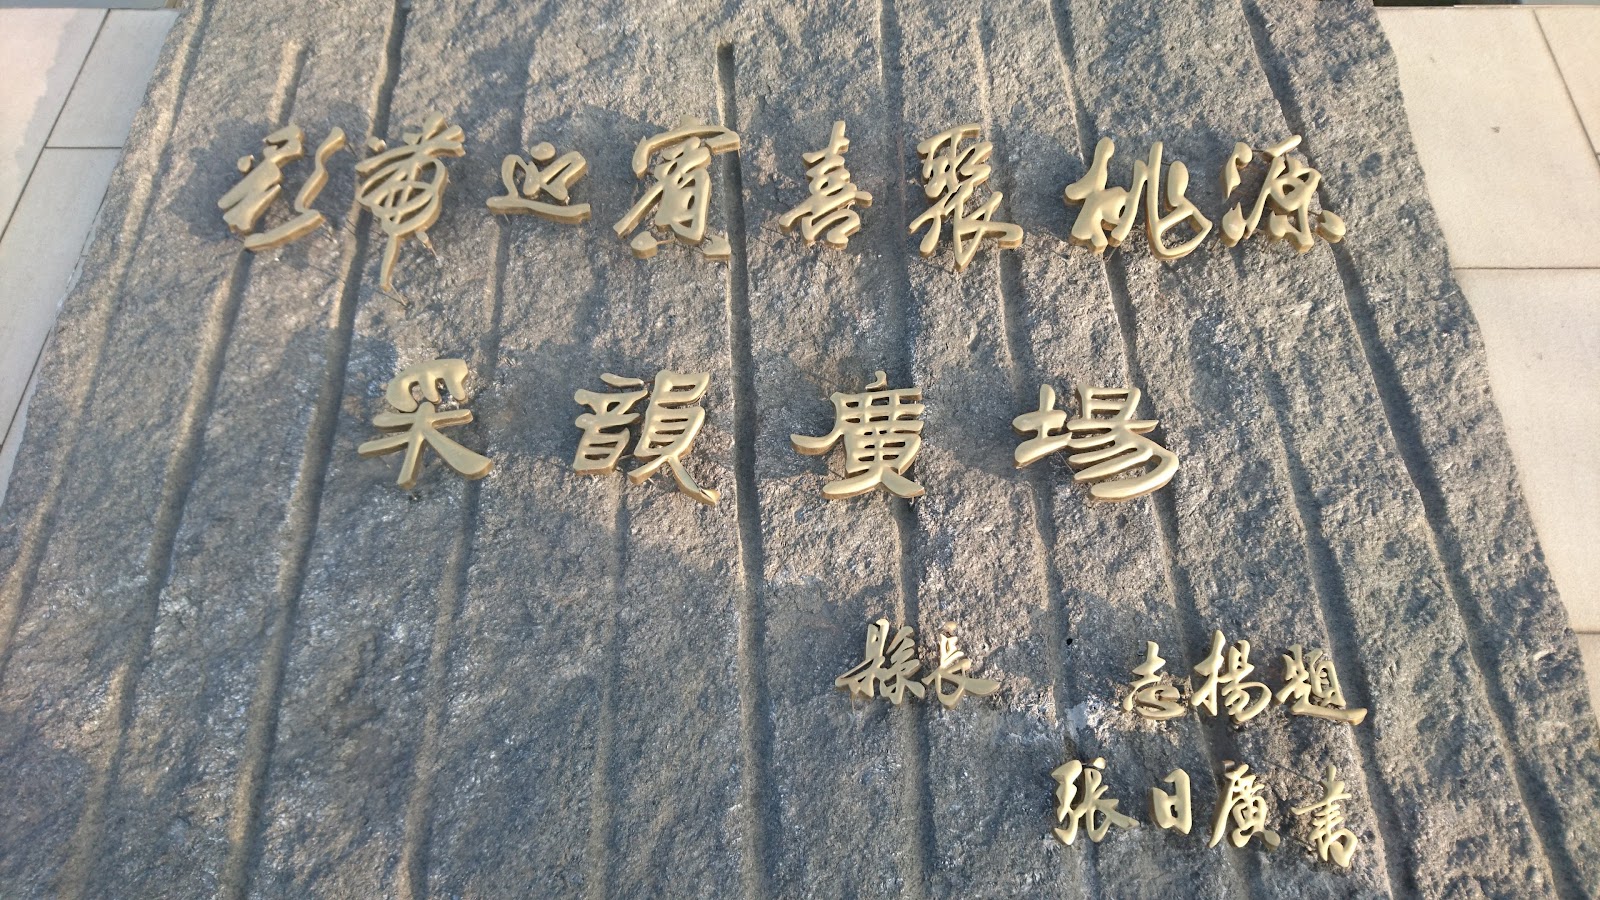 彩帶迎賓喜聚桃源
采韻廣場
縣長 志揚題
張日廣書